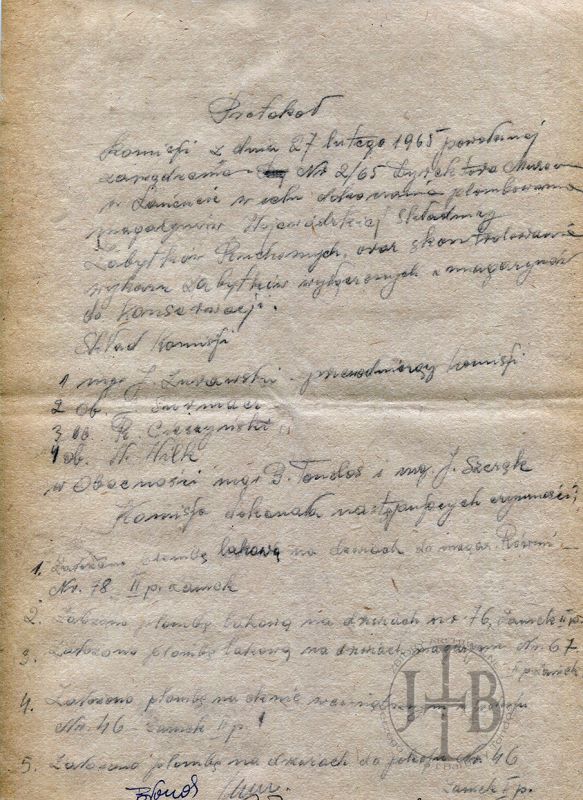 Protokół
Komisji z dnia 27 lutego 1965 powołanej
zarządzenia Nr 2/65 Dyrektora Muzeum
w Łańcucie w celu dokonania plombowania
magazynów Wojewódzkiej Składnicy
Zabytków Ruchomych, oraz skontrolowania
wykazu zabytków wyłączonych z magazynów
do konserwacji.
Skład Komisji
1 mgr J. Żurawski - przewodniczący komisji
2 ob.
3 ob
4 ob. W. Wilk
w Obecności mgr B. Tondos i mgr J. Szczęk
Komisja dokonała następujących czynności:
1. Założono plombę lakową na drzwiach do magaz.
Nr. 78 II p. zamek
2. Założono plombę lakową na drzwiach nr 76, Zamek II p.
3. Założono plombę lakową na drzwiach magazynu Nr. 67
II p. zamek
4. Założono plombę na
Nr. 46 - Zamek II p.
5. Założono plombę na drzwiach do pokoju Nr. 46
Zamek I p.
J B